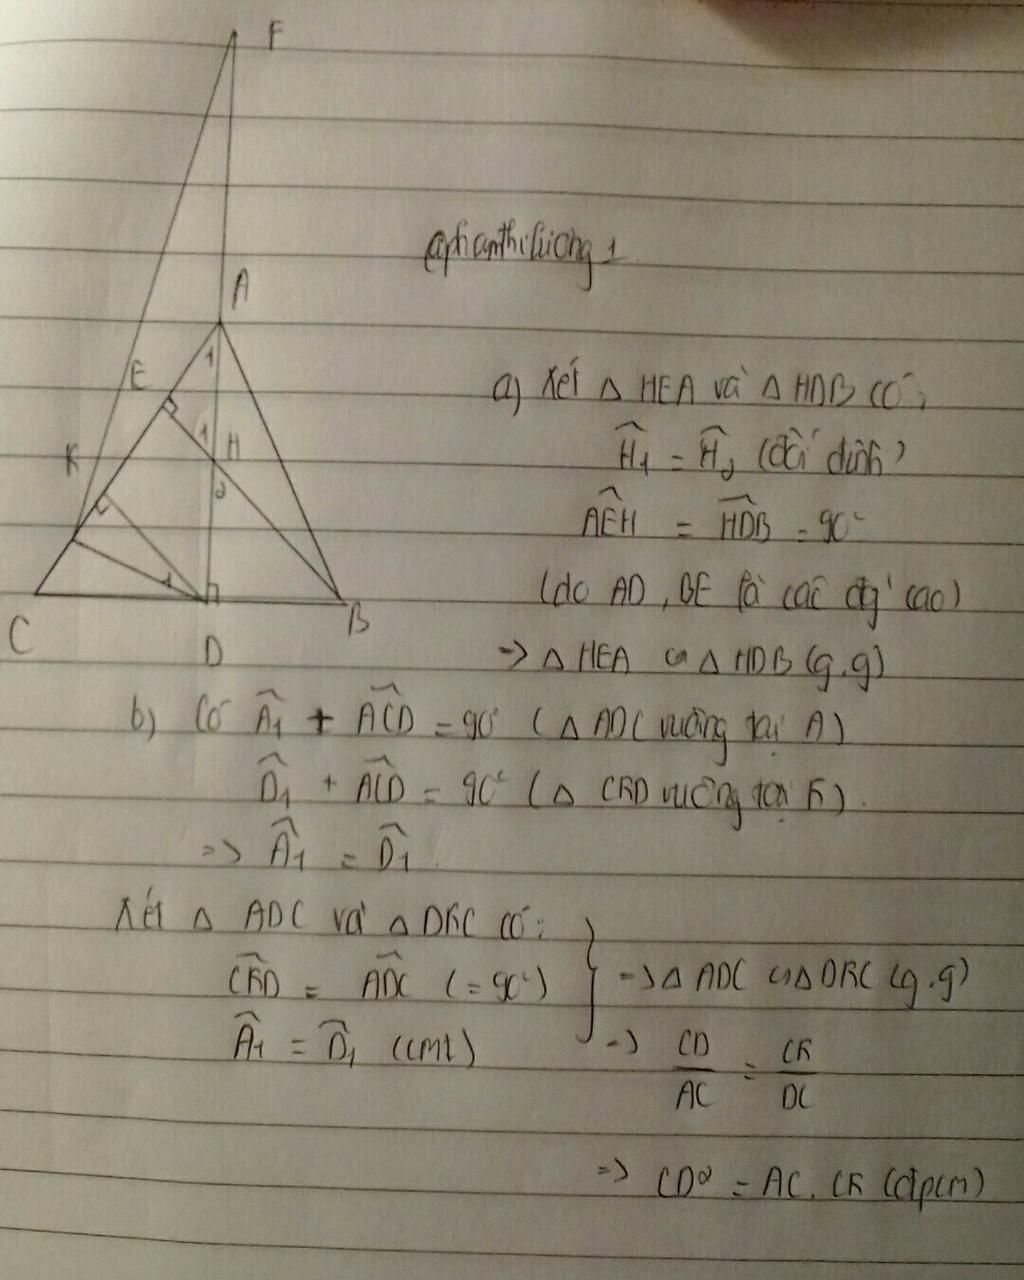 F
@phanthiluong1
A
1
E
1
H
2
K
1
C
D
B
a) Xét Δ HEA và Δ HDB có:
Ĥ1 = Ĥ2 (đối đỉnh)
AEH = HDB = 90°
(do AD, BE là các đg' cao)
=> Δ HEA ∽ Δ HDB (g.g)
b) Có Â1 + ACD = 90° (Δ ADC vuông tại A)
D̂1 + ACD = 90° (Δ CKD vuông tại K).
=> Â1 = D̂1
Xét Δ ADC và Δ DKC có:
CKD = ADC (=90°)
Â1 = D̂1 (cmt)
=> Δ ADC ∽ Δ DKC (g.g)
=> CD/AC = CK/DC
=> CD² = AC. CK (đpcm)